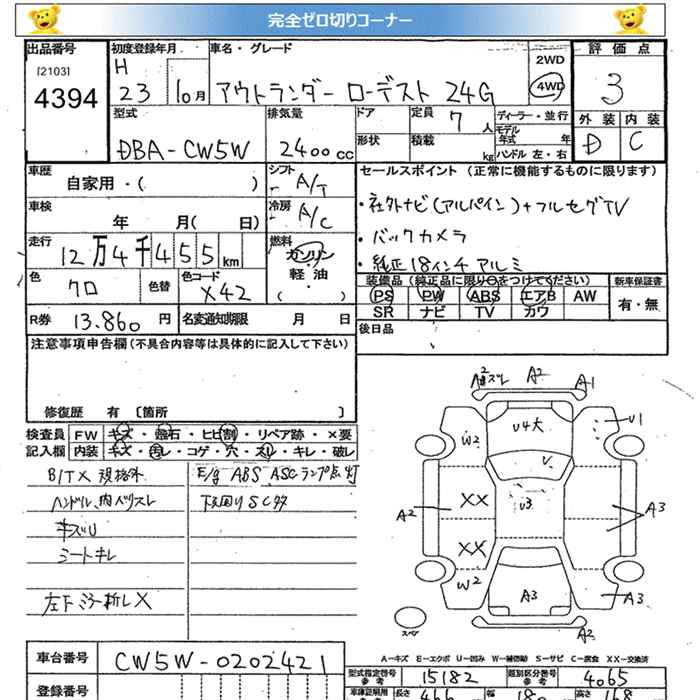 完全ゼロ切りコーナー
出品番号 初度登録年月 車名・グレード 評価点
[2103] H 2WD
4394 23 10月 アウトランダー ローデスト 24G 4WD 3
型式 排気量 ドア 定員 7人 ディーラー・並行 外装 内装
モデル年式 年
DBA-CW5W 2400cc 形状 積載 kg ハンドル 左・右 D C
車歴 シフト セールスポイント (正常に機能するものに限ります)
自家用・( ) A/T
・社外ナビ(アルパイン)+フルセグTV
車検 冷房
年 月( 日) A/C
・バックカメラ
走行 燃料
12万4千455km ガソリン・軽油・( )
・純正18インチアルミ
色 色替 色コード
クロ X42
装備品 (純正品に限り○をつけてください) 新車保証書
PS PW ABS エアB AW 有・無
SR ナビ TV カワ
R券 13.860円 名変通知期限 月 日
後日品
注意事項申告欄(不具合内容等は具体的に記入して下さい)
修復歴 有 〔箇所 〕
検査員 FW キズ・飛石・ヒビ割・リペア跡・×要
記入欄 内装 キズ・汚レ・コゲ・穴・スレ・キレ・破レ
B/TX 規格外 E/g ABS ASCランプ点灯
下廻りSCタ
シートキレ
左ドミラー折レX
A2 A2 A1
U4大 U1
W2 V
XX U3
A2 A3
XX
W2 A3 A3
A2
スペア
A-キズ E-エクボ U-凹み W-補修跡 S-サビ C-腐食 XX-交換済
車台番号 CW5W-0202421
型式指定番号 参考 15182 類別区分番号 参考 4065
登録番号
長さ 466 幅 180 高さ 168